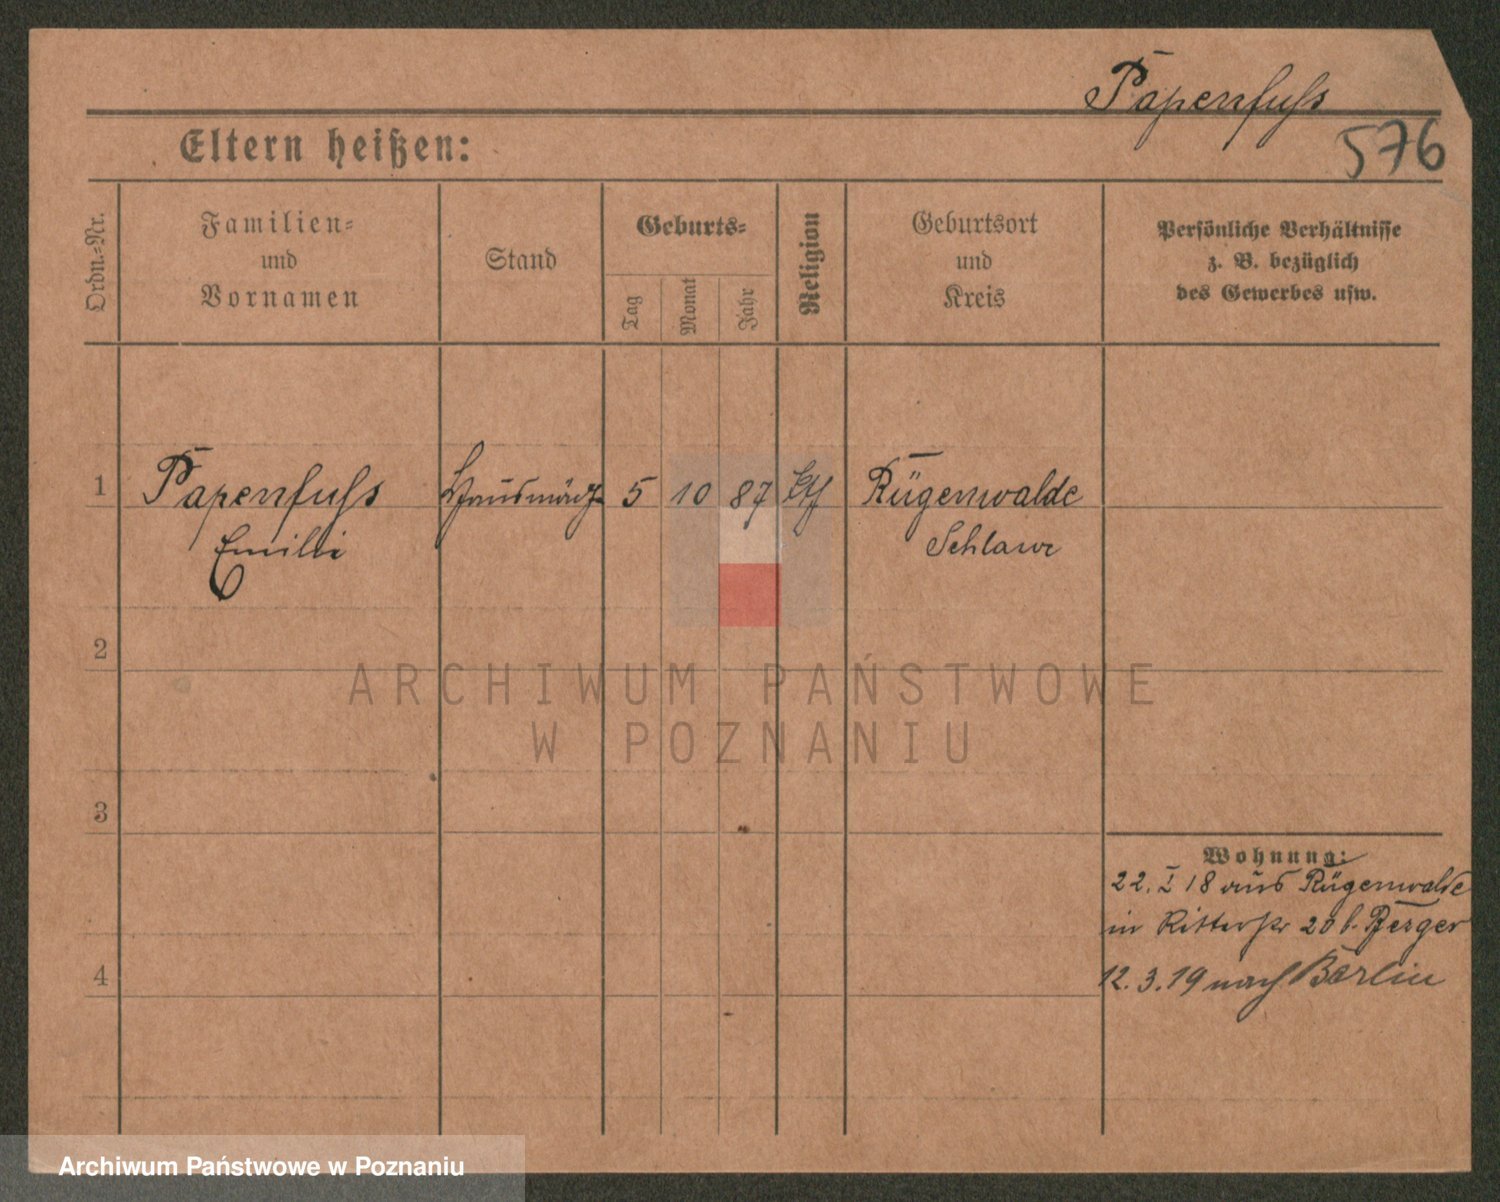 Papenfuss
576
Eltern heißen:
Ordn.-Nr.
Familien-
und
Vornamen
Stand
Geburts-
Tag
Monat
Jahr
Religion
Geburtsort
und
Kreis
Persönliche Verhältnisse
z. B. bezüglich
des Gewerbes usw.
1 Papenfuss 5 10 87 Rügenwalde
Schlawe
2
ARCHIWUM PAŃSTWOWE
W POZNANIU
3
Wohnung:
22. I 18 aus Rügenwalde
in Ritterstr 20 b. Berger
4
12. 3. 19 nach Berlin
Archiwum Państwowe w Poznaniu